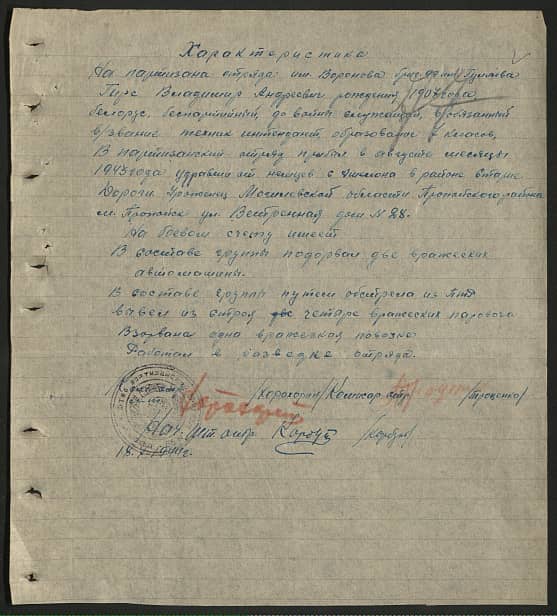 Характеристика
На партизана отряда им. Воронова бригады им. Гуляева
Гирс Владимир Андреевич рождения 1904 года
белорус, беспартийный, до войны служащий, в/обязанный
в/звание техник интендант образование 7 классов.
В партизанский отряд прибыл в августе месяцы
1943 года удравши от немцев с в районе Старые
Дороги Уроженец Могилевской области Пропойского района
м. Пропойск ул. Ветренная дом N 28.
На боевом счету имеет
В составе группы подорвал две вражеских
автомашины.
В составе группы путем обстрела из ПТР
вывел из строя четыре вражеских паровоза
Взорвана одна вражеская повозка
Работал в разведке отряда.
Комиссар отр.
Нач. шт. отр. Корбут /Корбут/
18.7.1944г.